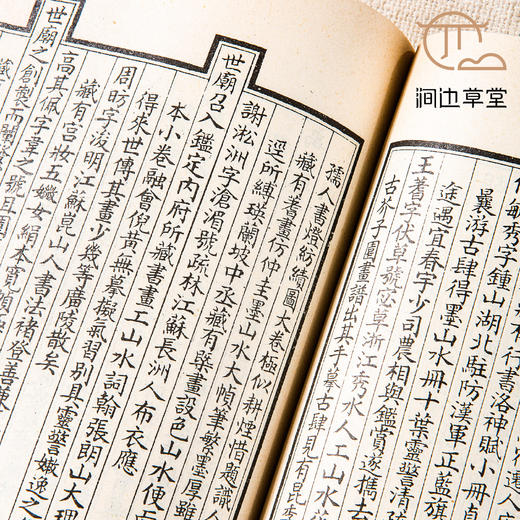 涧边草堂
行書洛神賦小冊
敏秀字鍾山湖北駐防漢軍正藍旗
游古肆得墨山水冊十葉靈警清
途遇宜春宇少司農相與鑑賞遂攜去
王蓍字伏草號宓草浙江秀水人工山水
古芥子園畫譜出其手摹古肆見有昆季
孺人書燈紡績圖大卷極似耕煙惜題識人
藏有蓍畫仿仲圭墨山水大幀筆繁墨厚雖
逕所縛瑛蘭坡中丞藏有槼畫設色山水便
謝淞洲字滄湄號疏林江蘇長洲人布衣應
世廟召入鑑定內府所藏書畫工山水詞翰張朗山大理
本小卷融會倪黃無摹擬氣習別具靈警嫩逸之
得來世傳其畫少幾等廣陵散矣
周昉字浚明江蘇崑山人書法褚登善兼
藏有宮妝五孅女絹本寬
高其佩字韋之號且園
世廟之創製而